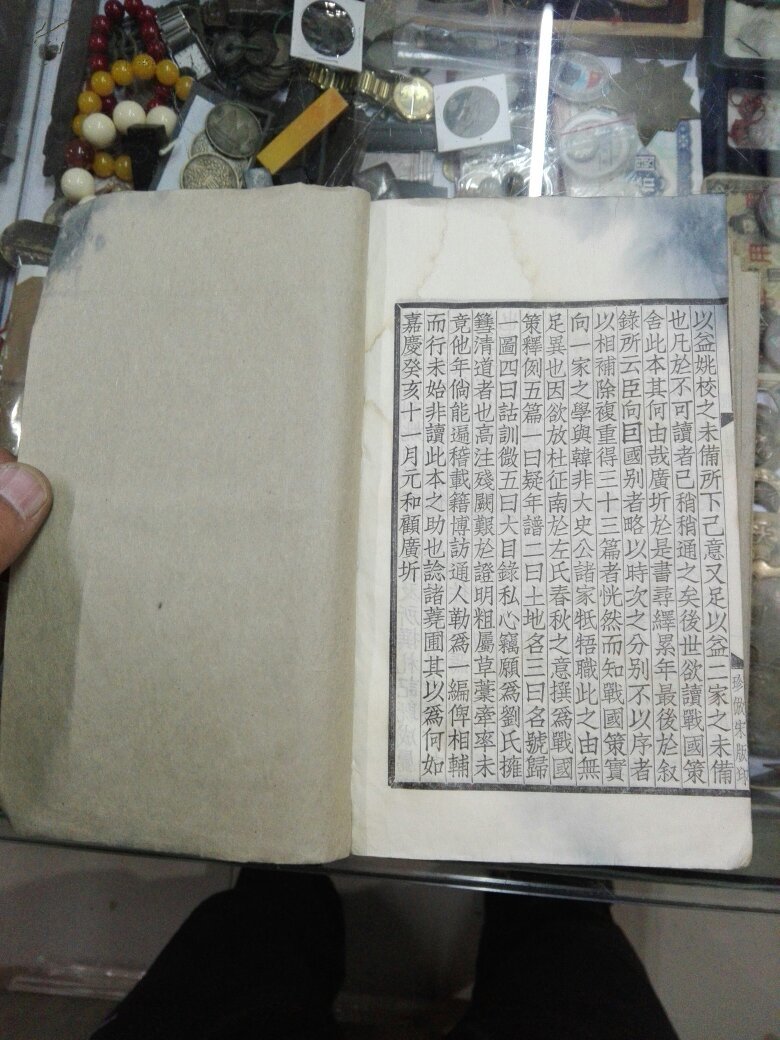 以益姚校之未備所下己意又足以益二家之未備
也凡於不可讀者已稍稍通之矣後世欲讀戰國策
舍此本其何由哉廣圻於是書尋繹累年最後於敘
錄所云臣向因國別者略以時次之分別不以序者
以相補除複重得三十三篇者恍然而知戰國策實
向一家之學與韓非大史公諸家牴牾職此之由無
足異也因欲放杜征南於左氏春秋之意撰爲戰國
策釋例五篇一曰疑年譜二曰土地名三曰名號歸
一圖四曰詁訓微五曰大目錄私心竊願爲劉氏擁
篲清道者也高注殘闕艱於證明粗屬草藳牽率未
竟他年倘能遍稽載籍博訪通人勒爲一編俾相輔
而行未始非讀此本之助也諗諸蕘圃其以爲何如
嘉慶癸亥十一月元和顧廣圻
珍倣宋版印